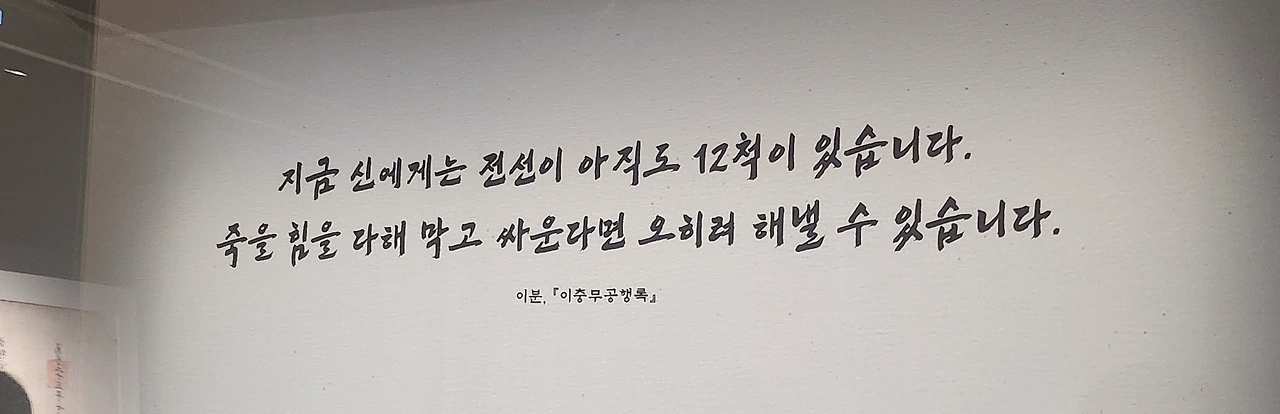 지금 신에게는 전선이 아직도 12척이 있습니다.
죽을 힘을 다해 막고 싸운다면 오히려 해낼 수 있습니다.
이분, 『이충무공행록』